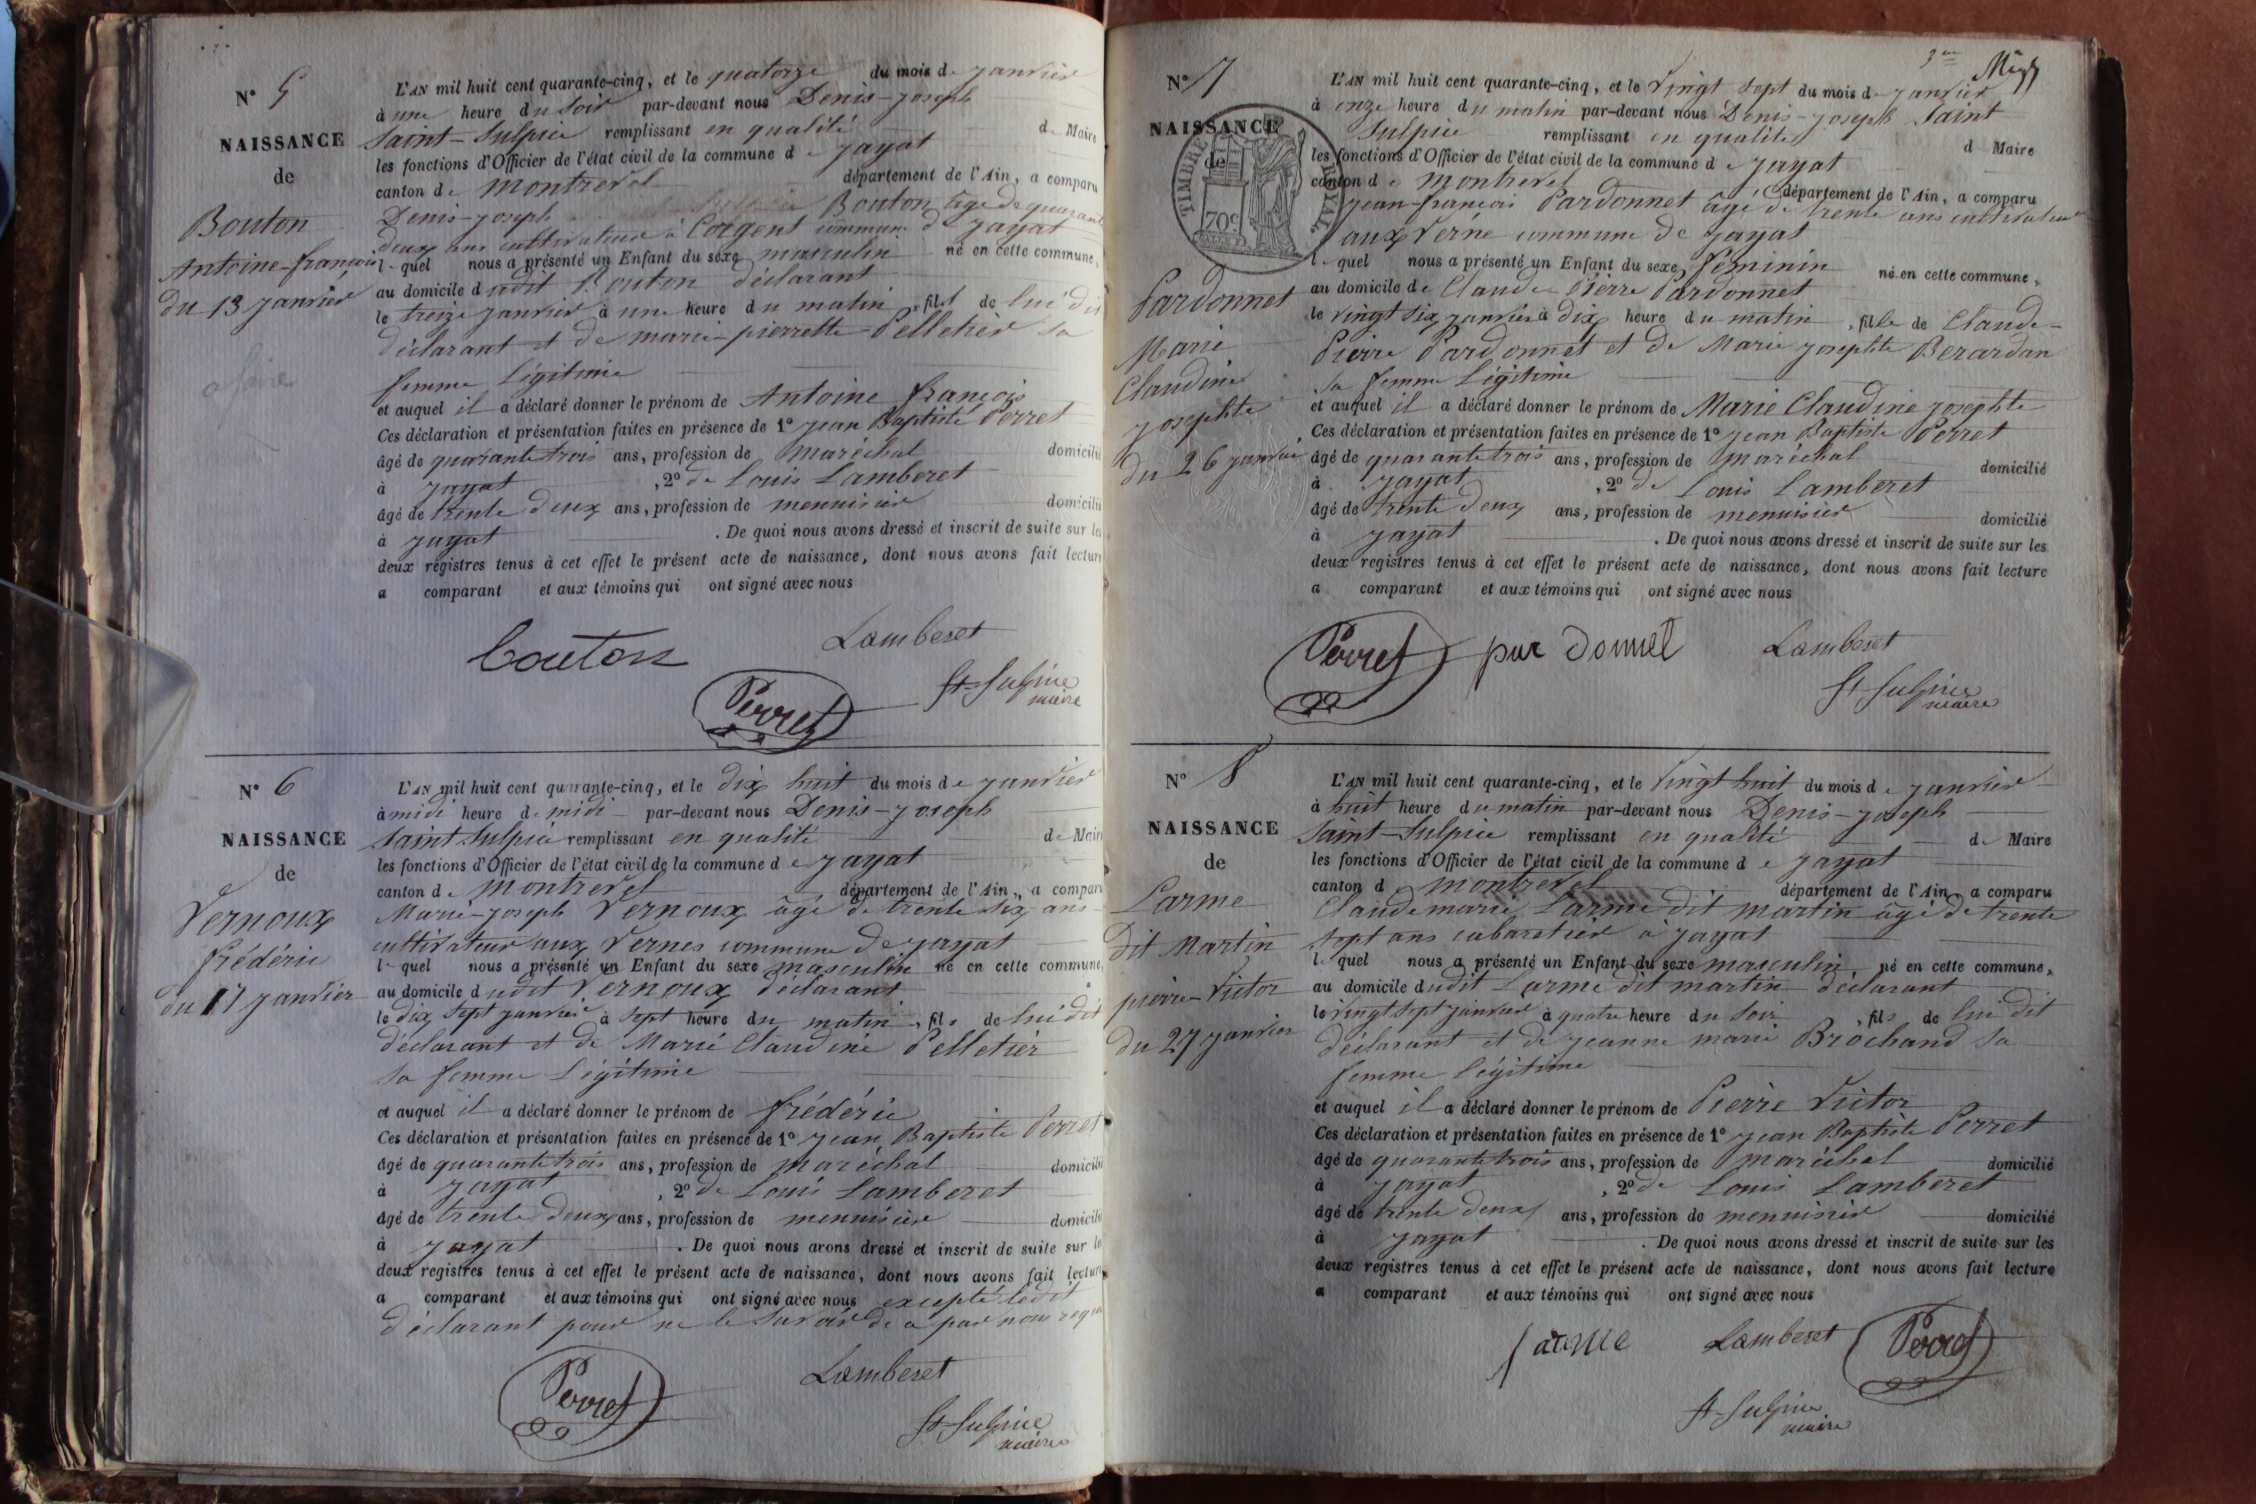 N° 5
NAISSANCE
de
Bouton
Antoine-françois
du 13 janvier
a faire
L'AN mil huit cent quarante-cinq, et le quatorze du mois de janvier
à une heure du soir par-devant nous Denis-joseph
Saint-Sulpice remplissant en qualité de Maire
les fonctions d'Officier de l'état civil de la commune de jayat
canton de montrevel département de l'Ain, a comparu
Denis-joseph Bouton âgé de quarante
deux ans cultivateur à Corgent commune de jayat
lequel nous a présenté un Enfant du sexe masculin né en cette commune,
au domicile dudit Bouton déclarant
le treize janvier à une heure du matin, fils de lui dit
déclarant et de marie-pierrette Pelletier sa
femme légitime
et auquel il a déclaré donner le prénom de Antoine françois
Ces déclaration et présentation faites en présence de 1° jean Baptiste Perret
âgé de quarante trois ans, profession de maréchal domicilié
à jayat, 2° de Louis Lamberet
âgé de trente deux ans, profession de menuisier domicilié
à jayat. De quoi nous avons dressé et inscrit de suite sur les
deux registres tenus à cet effet le présent acte de naissance, dont nous avons fait lecture
a comparant et aux témoins qui ont signé avec nous
bouton Lamberet
Perret St Sulpice
maire
N° 6
NAISSANCE
de
Vernoux
frédéric
du 17 janvier
L'AN mil huit cent quarante-cinq, et le dix huit du mois de janvier
à midi heure de midi par-devant nous Denis-joseph
Saint Sulpice remplissant en qualité de Maire
les fonctions d'Officier de l'état civil de la commune de jayat
canton de montrevel département de l'Ain, a comparu
Marie-joseph Vernoux âgé de trente six ans
cultivateur aux Vernes commune de jayat
lequel nous a présenté un Enfant du sexe masculin né en cette commune,
au domicile dudit Vernoux déclarant
le dix sept janvier à sept heure du matin, fils de lui dit
déclarant et de Marie Claudine Pelletier
sa femme légitime
et auquel il a déclaré donner le prénom de frédéric
Ces déclaration et présentation faites en présence de 1° jean Baptiste Perret
âgé de quarante trois ans, profession de maréchal domicilié
à jayat, 2° de Louis Lamberet
âgé de trente deux ans, profession de menuisier domicilié
à jayat. De quoi nous avons dressé et inscrit de suite sur les
deux registres tenus à cet effet le présent acte de naissance, dont nous avons fait lecture
a comparant et aux témoins qui ont signé avec nous excepté ledit
déclarant pour ne le savoir de ce par nous requis
Perret Lamberet
St Sulpice
maire
N° 7
NAISSANCE
de
TIMBRE ROYAL
70 c.
Pardonnet
Marie
Claudine
josephte
du 26 janvier
L'AN mil huit cent quarante-cinq, et le vingt sept du mois de janvier
à onze heure du matin par-devant nous Denis-joseph Saint
Sulpice remplissant en qualité de Maire
les fonctions d'Officier de l'état civil de la commune de jayat
canton de montrevel département de l'Ain, a comparu
jean-françois Pardonnet âgé de trente ans cultivateur
aux Verne commune de jayat
lequel nous a présenté un Enfant du sexe féminin né en cette commune,
au domicile de Claude Pierre Pardonnet
le vingt six janvier à dix heure du matin, fille de Claude-
Pierre Pardonnet et de Marie josephte Berardan
sa femme légitime
et auquel il a déclaré donner le prénom de Marie Claudine josephte
Ces déclaration et présentation faites en présence de 1° jean Baptiste Perret
âgé de quarante trois ans, profession de maréchal domicilié
à jayat, 2° de Louis Lamberet
âgé de trente deux ans, profession de menuisier domicilié
à jayat. De quoi nous avons dressé et inscrit de suite sur les
deux registres tenus à cet effet le présent acte de naissance, dont nous avons fait lecture
a comparant et aux témoins qui ont signé avec nous
Perret par donnet Lamberet
St Sulpice
maire
N° 8
NAISSANCE
de
Larme
dit Martin
pierre-Victor
du 27 janvier
L'AN mil huit cent quarante-cinq, et le vingt huit du mois de janvier
à huit heure du matin par-devant nous Denis-joseph
Saint-Sulpice remplissant en qualité de Maire
les fonctions d'Officier de l'état civil de la commune de jayat
canton d montrevel département de l'Ain, a comparu
Claude marie Larme dit martin âgé de trente
sept ans cabaretier à jayat
lequel nous a présenté un Enfant du sexe masculin né en cette commune,
au domicile dudit Larme dit martin déclarant
le vingt sept janvier à quatre heure du soir, fils de lui dit
déclarant et de jeanne marie Brochand sa
femme légitime
et auquel il a déclaré donner le prénom de Pierre Victor
Ces déclaration et présentation faites en présence de 1° jean Baptiste Perret
âgé de quarante trois ans, profession de maréchal domicilié
à jayat, 2° de Louis Lamberet
âgé de trente deux ans, profession de menuisier domicilié
à jayat. De quoi nous avons dressé et inscrit de suite sur les
deux registres tenus à cet effet le présent acte de naissance, dont nous avons fait lecture
a comparant et aux témoins qui ont signé avec nous
larme Lamberet Perret
St Sulpice
maire